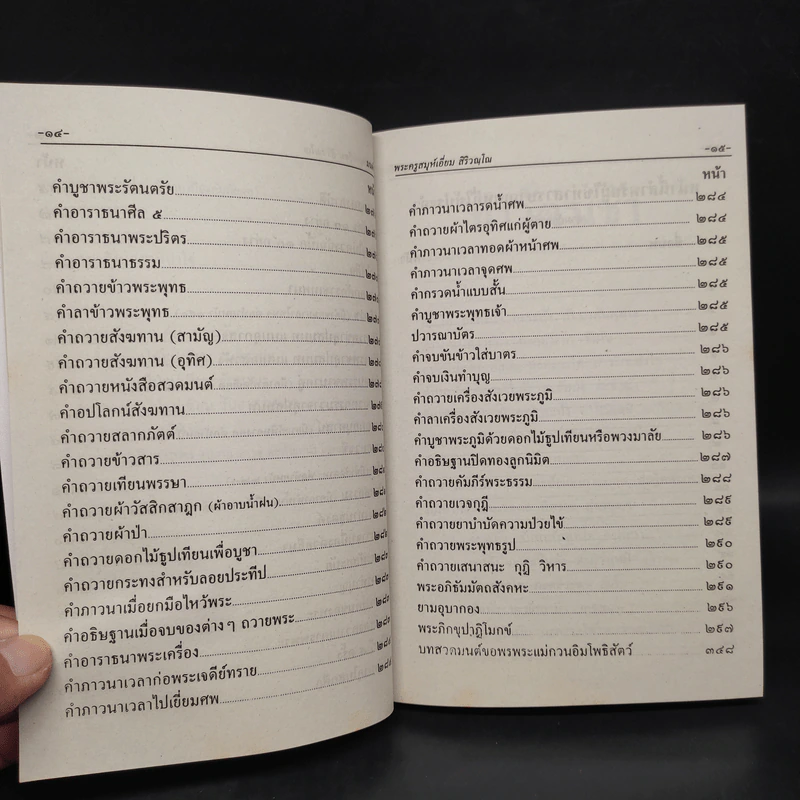 -๑๔-
คำบูชาพระรัตนตรัย
คำอาราธนาศีล ๕
คำอาราธนาพระปริตร
คำอาราธนาธรรม
คำถวายข้าวพระพุทธ
คำลาข้าวพระพุทธ
คำถวายสังฆทาน (สามัญ)
คำถวายสังฆทาน (อุทิศ)
คำถวายหนังสือสวดมนต์
คำอปโลกน์สังฆทาน
คำถวายสลากภัตต์
คำถวายข้าวสาร
คำถวายเทียนพรรษา
คำถวายผ้าวัสสิกสาฎก (ผ้าอาบน้ำฝน)
คำถวายผ้าป่า
คำถวายดอกไม้ธูปเทียนเพื่อบูชา
คำถวายกระทงสำหรับลอยประทีป
คำภาวนาเมื่อยกมือไหว้พระ
คำอธิษฐานเมื่อจบของต่างๆ ถวายพระ
คำอาราธนาพระเครื่อง
คำภาวนาเวลาก่อพระเจดีย์ทราย
คำภาวนาเวลาไปเยี่ยมศพ
พระครูสมุห์เอี่ยม สิริวณฺโณ -๑๕-
หน้า
คำภาวนาเวลารดน้ำศพ ๒๘๔
คำถวายผ้าไตรอุทิศแก่ผู้ตาย ๒๘๔
คำภาวนาเวลาทอดผ้าหน้าศพ ๒๘๕
คำภาวนาเวลาจุดศพ ๒๘๕
คำกรวดน้ำแบบสั้น ๒๘๕
คำบูชาพระพุทธเจ้า ๒๘๕
ปวารณาบัตร ๒๘๕
คำจบขันข้าวใส่บาตร ๒๘๖
คำจบเงินทำบุญ ๒๘๖
คำถวายเครื่องสังเวยพระภูมิ ๒๘๖
คำลาเครื่องสังเวยพระภูมิ ๒๘๖
คำบูชาพระภูมิด้วยดอกไม้ธูปเทียนหรือพวงมาลัย ๒๘๖
คำอธิษฐานปิดทองลูกนิมิต ๒๘๗
คำถวายคัมภีร์พระธรรม ๒๘๘
คำถวายเวจกุฎี ๒๘๙
คำถวายยาบำบัดความป่วยไข้ ๒๘๙
คำถวายพระพุทธรูป ๒๙๐
คำถวายเสนาสนะ กุฏิ วิหาร ๒๙๐
พระอภิธัมมัตถสังคหะ ๒๙๑
ยามอุบากอง ๒๙๖
พระภิกขุปาฏิโมกข์ ๒๙๗
บทสวดมนต์ขอพรพระแม่กวนอิมโพธิสัตว์ ๓๔๘